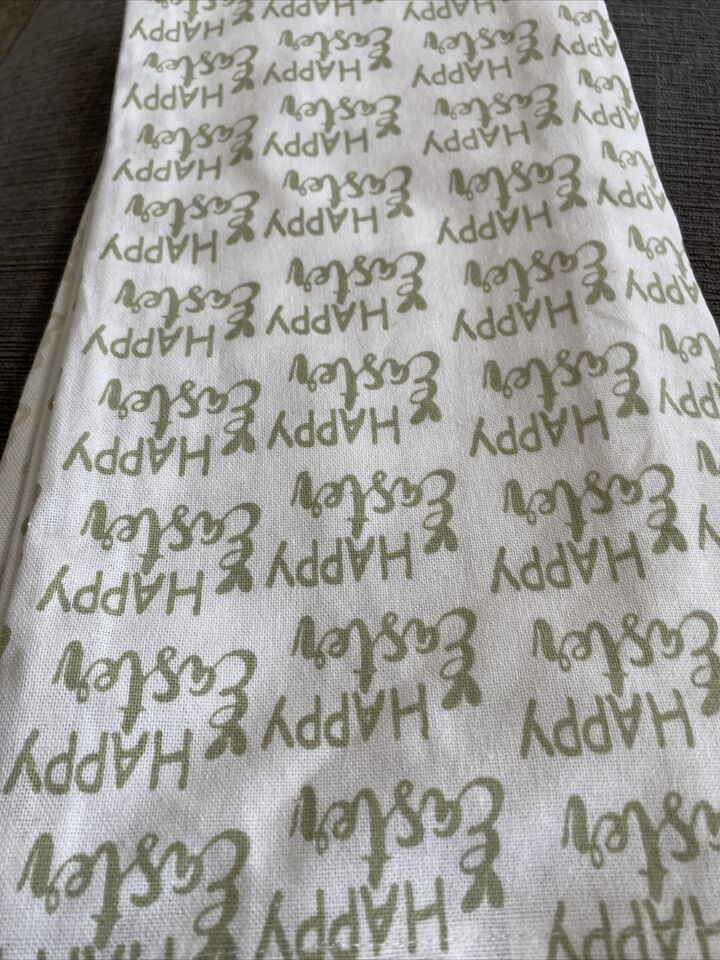 HAPPY HAPPY
Easter Easter Easter
HAPPY HAPPY HAPPY
Easter Easter Easter
HAPPY HAPPY HAPPY
Easter Easter Easter
HAPPY HAPPY HAPPY
Easter Easter Easter
HAPPY HAPPY HAPPY
Easter Easter Easter
HAPPY HAPPY HAPPY
Easter Easter Easter
HAPPY HAPPY HAPPY
Easter Easter Easter
HAPPY HAPPY HAPPY
Easter Easter Easter
HAPPY HAPPY HAPPY